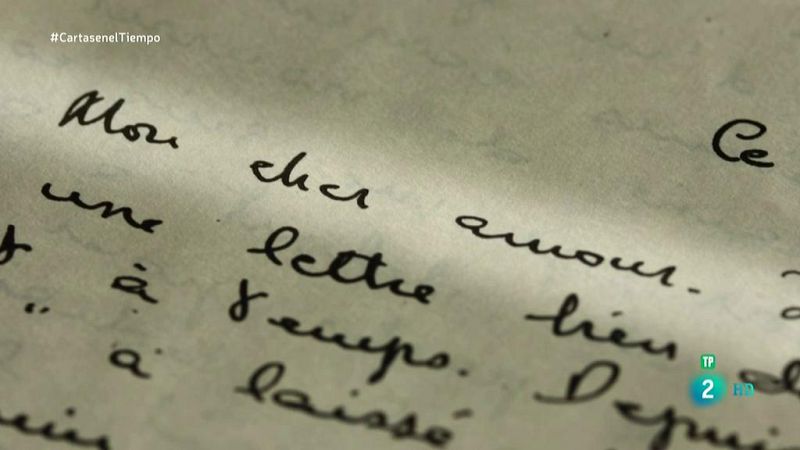 #CartasenelTiempo
Ce
Mon cher amour.
une lettre bien
à temps. Depui
" à laissé
TP
2 HD